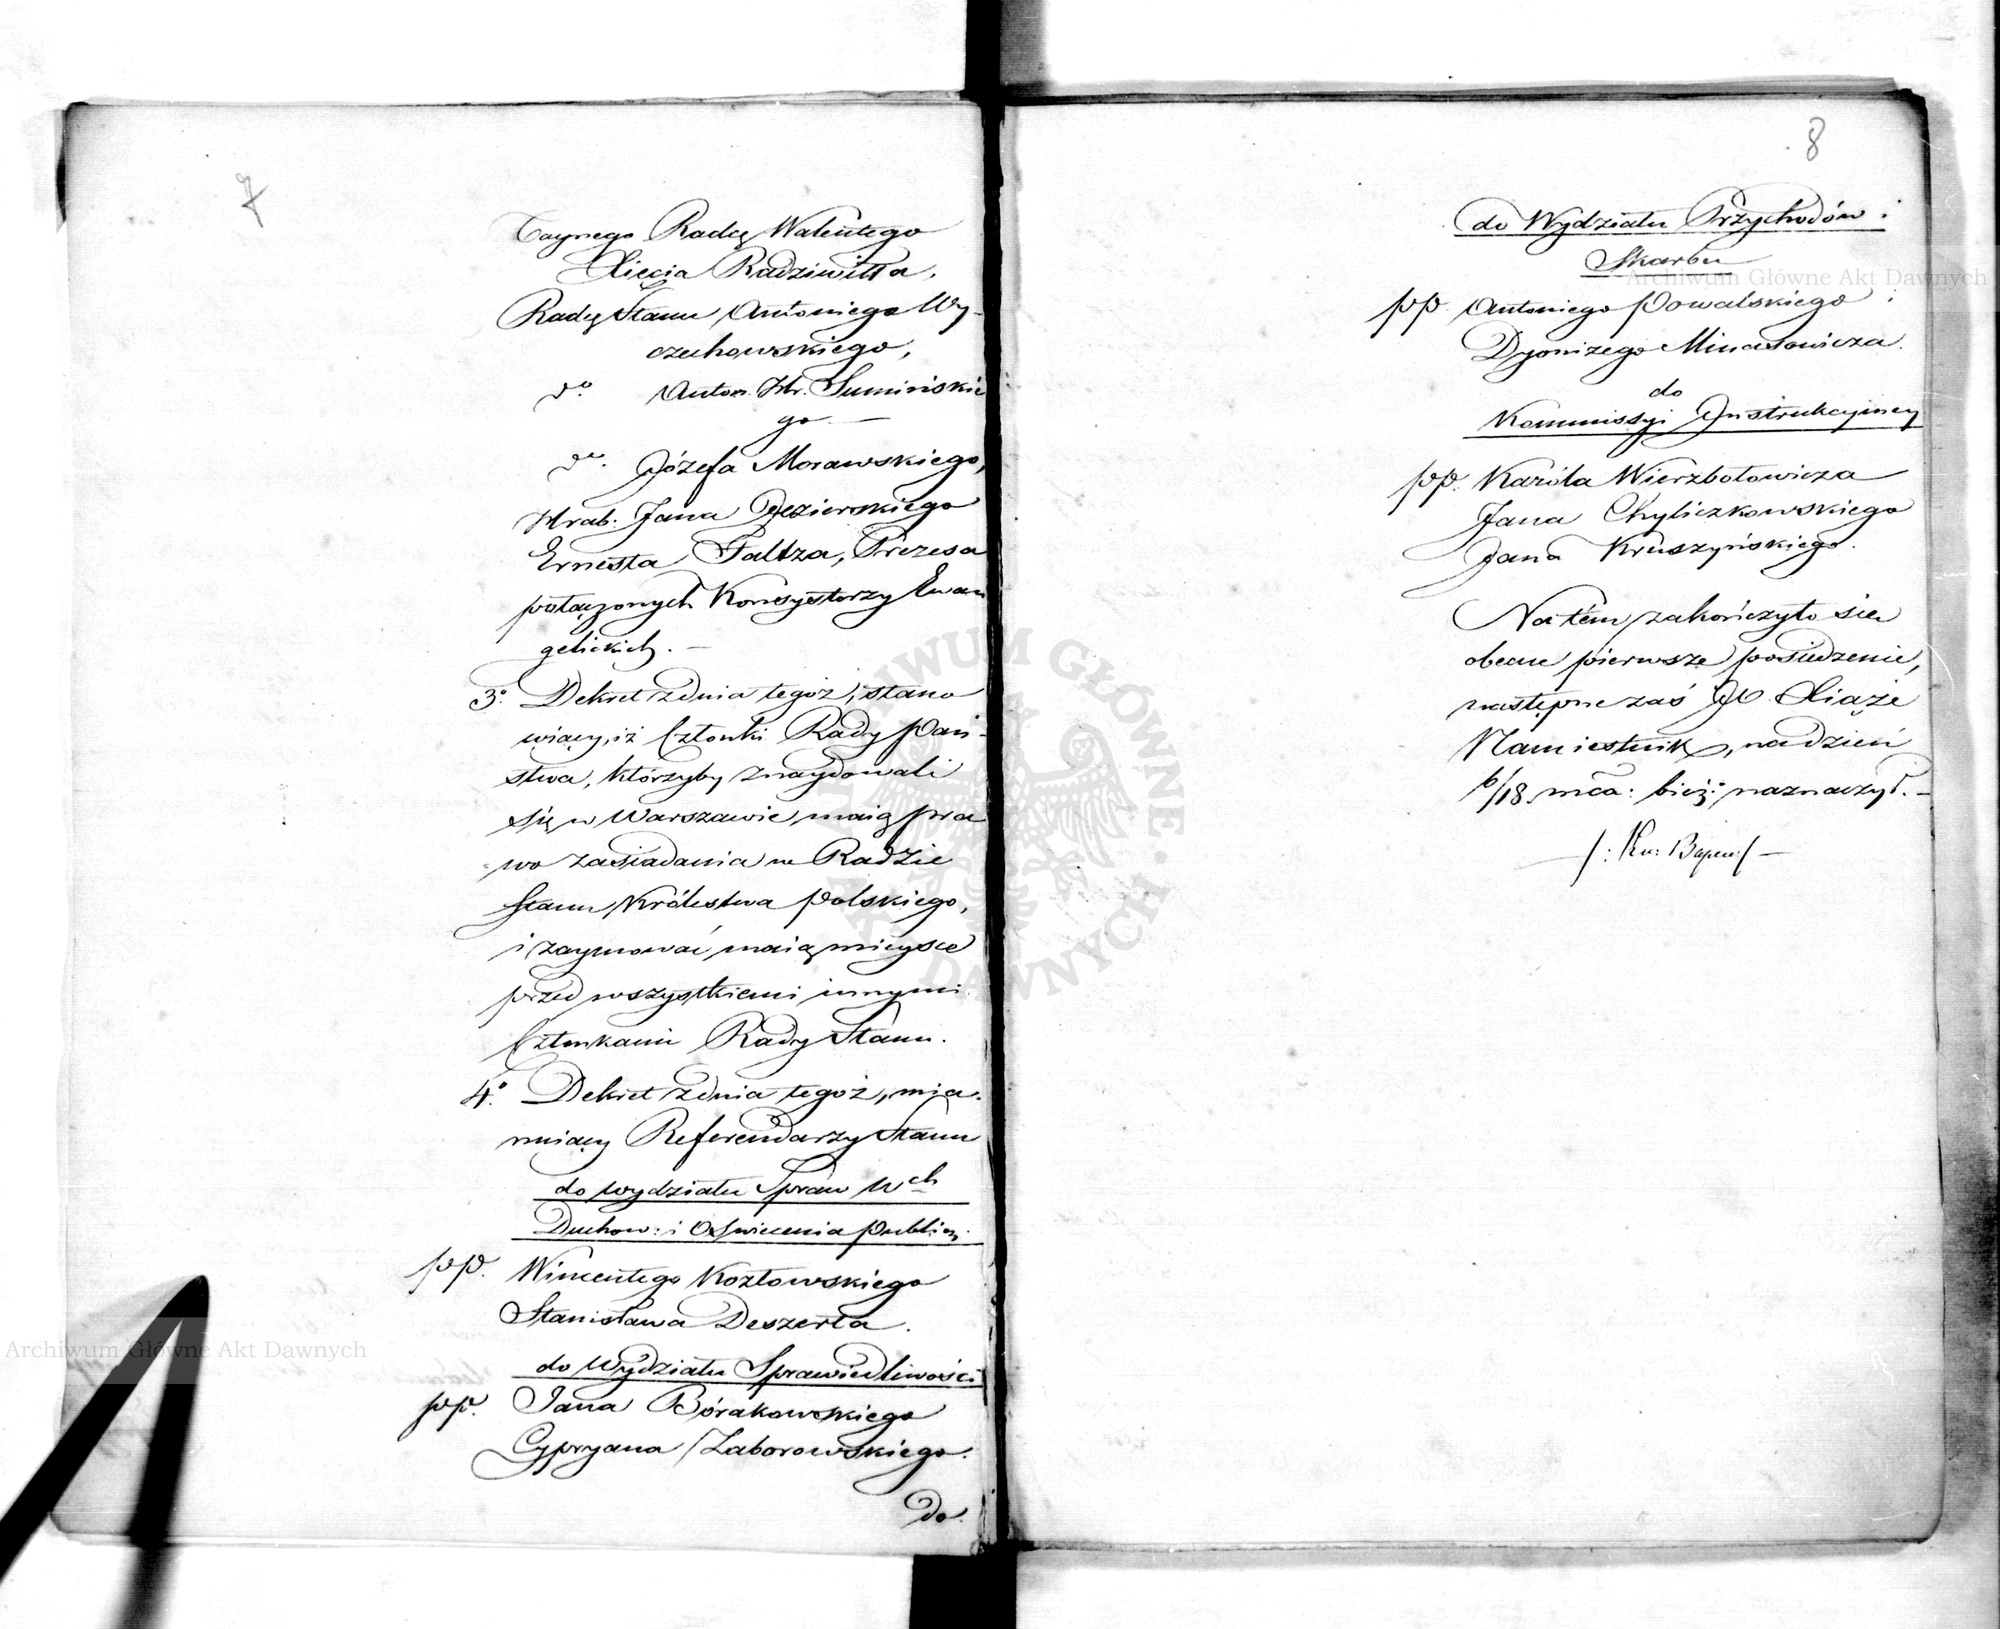 7
Taynego Radcę Walentego
Xięcia Radziwiłła,
Radcę Stanu Antoniego Wy-
czechowskiego,
do. Anton. Hr. Sumińskie
go. —
do. Józefa Morawskiego,
Hrab. Jana Jezierskiego
Ernesta Faltza, Prezesa
połączonych Konsystorzy Ewan
gelickich. —
3o. Dekret z dnia tegoż, stano
wiący, iż Członki Rady Pań-
stwa, którzyby znaydowali
się w Warszawie, maią pra
wo zasiadania w Radzie
Stanu Królestwa Polskiego,
i zaymować maią mieysce
przed wszystkiemi innymi
Członkami Rady Stanu.
4o. Dekret z dnia tegoż, mia-
nuiący Referendarzy Stanu
do wydziału Spraw Wch
Duchow: i Oświecenia Public:
pp. Wincentego Kozłowskiego
Stanisława Deszerta.
do Wydziału Sprawiedliwości
pp. Jana Bórakowskiego
Cypryana Zaborowskiego.
Do
8
do Wydziału Przychodów i
Skarbu
pp. Antoniego Powalskiego i
Dyonizego Minasowicza.
do
Kommissyi Instrukcyiney
pp. Karóla Wierzbołowicza
Jana Chyliczkowskiego
Jana Kruszyńskiego.
Na tém zakończyło się
obecne pierwsze posiedzenie,
następne zaś JO Xiąże
Namiestnik, na dzień
6/18. mca: bież: naznaczył. —
Archiwum Główne Akt Dawnych
Archiwum Główne Akt Dawnych
ARCHIWUM GŁÓWNE AKT DAWNYCH